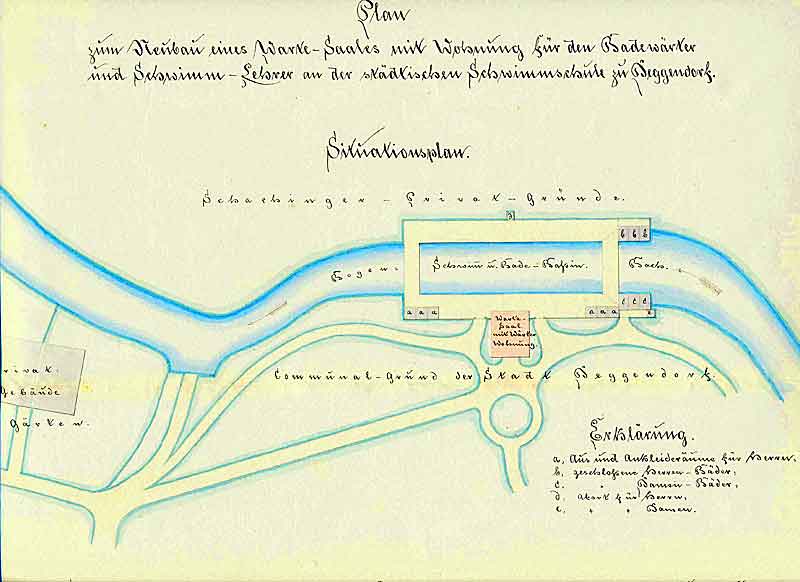 Plan
zum Neubau eines Warte-Saales mit Wohnung für den Badewärter
und Schwimm-Lehrer an der städtischen Schwimmschule zu Deggendorf.
Situationsplan.
Schachinger - Privat - Gründe.
d
b b b
Bogen- Schwim u. Bade-Bassin. Bach.
a a a
a a a
c c c
e
Warte-
Saal
mit Wärter
Wohnung.
Communal-Grund der Stadt Deggendorf.
Privat
Gebäude
Gärten.
Erklärung.
a. Aus und Ankleideräume für Herren.
b. geschlossene Herren-Bäder;
c. " Damen-Bäder;
d. Abort für Herrn;
e. " " Damen.